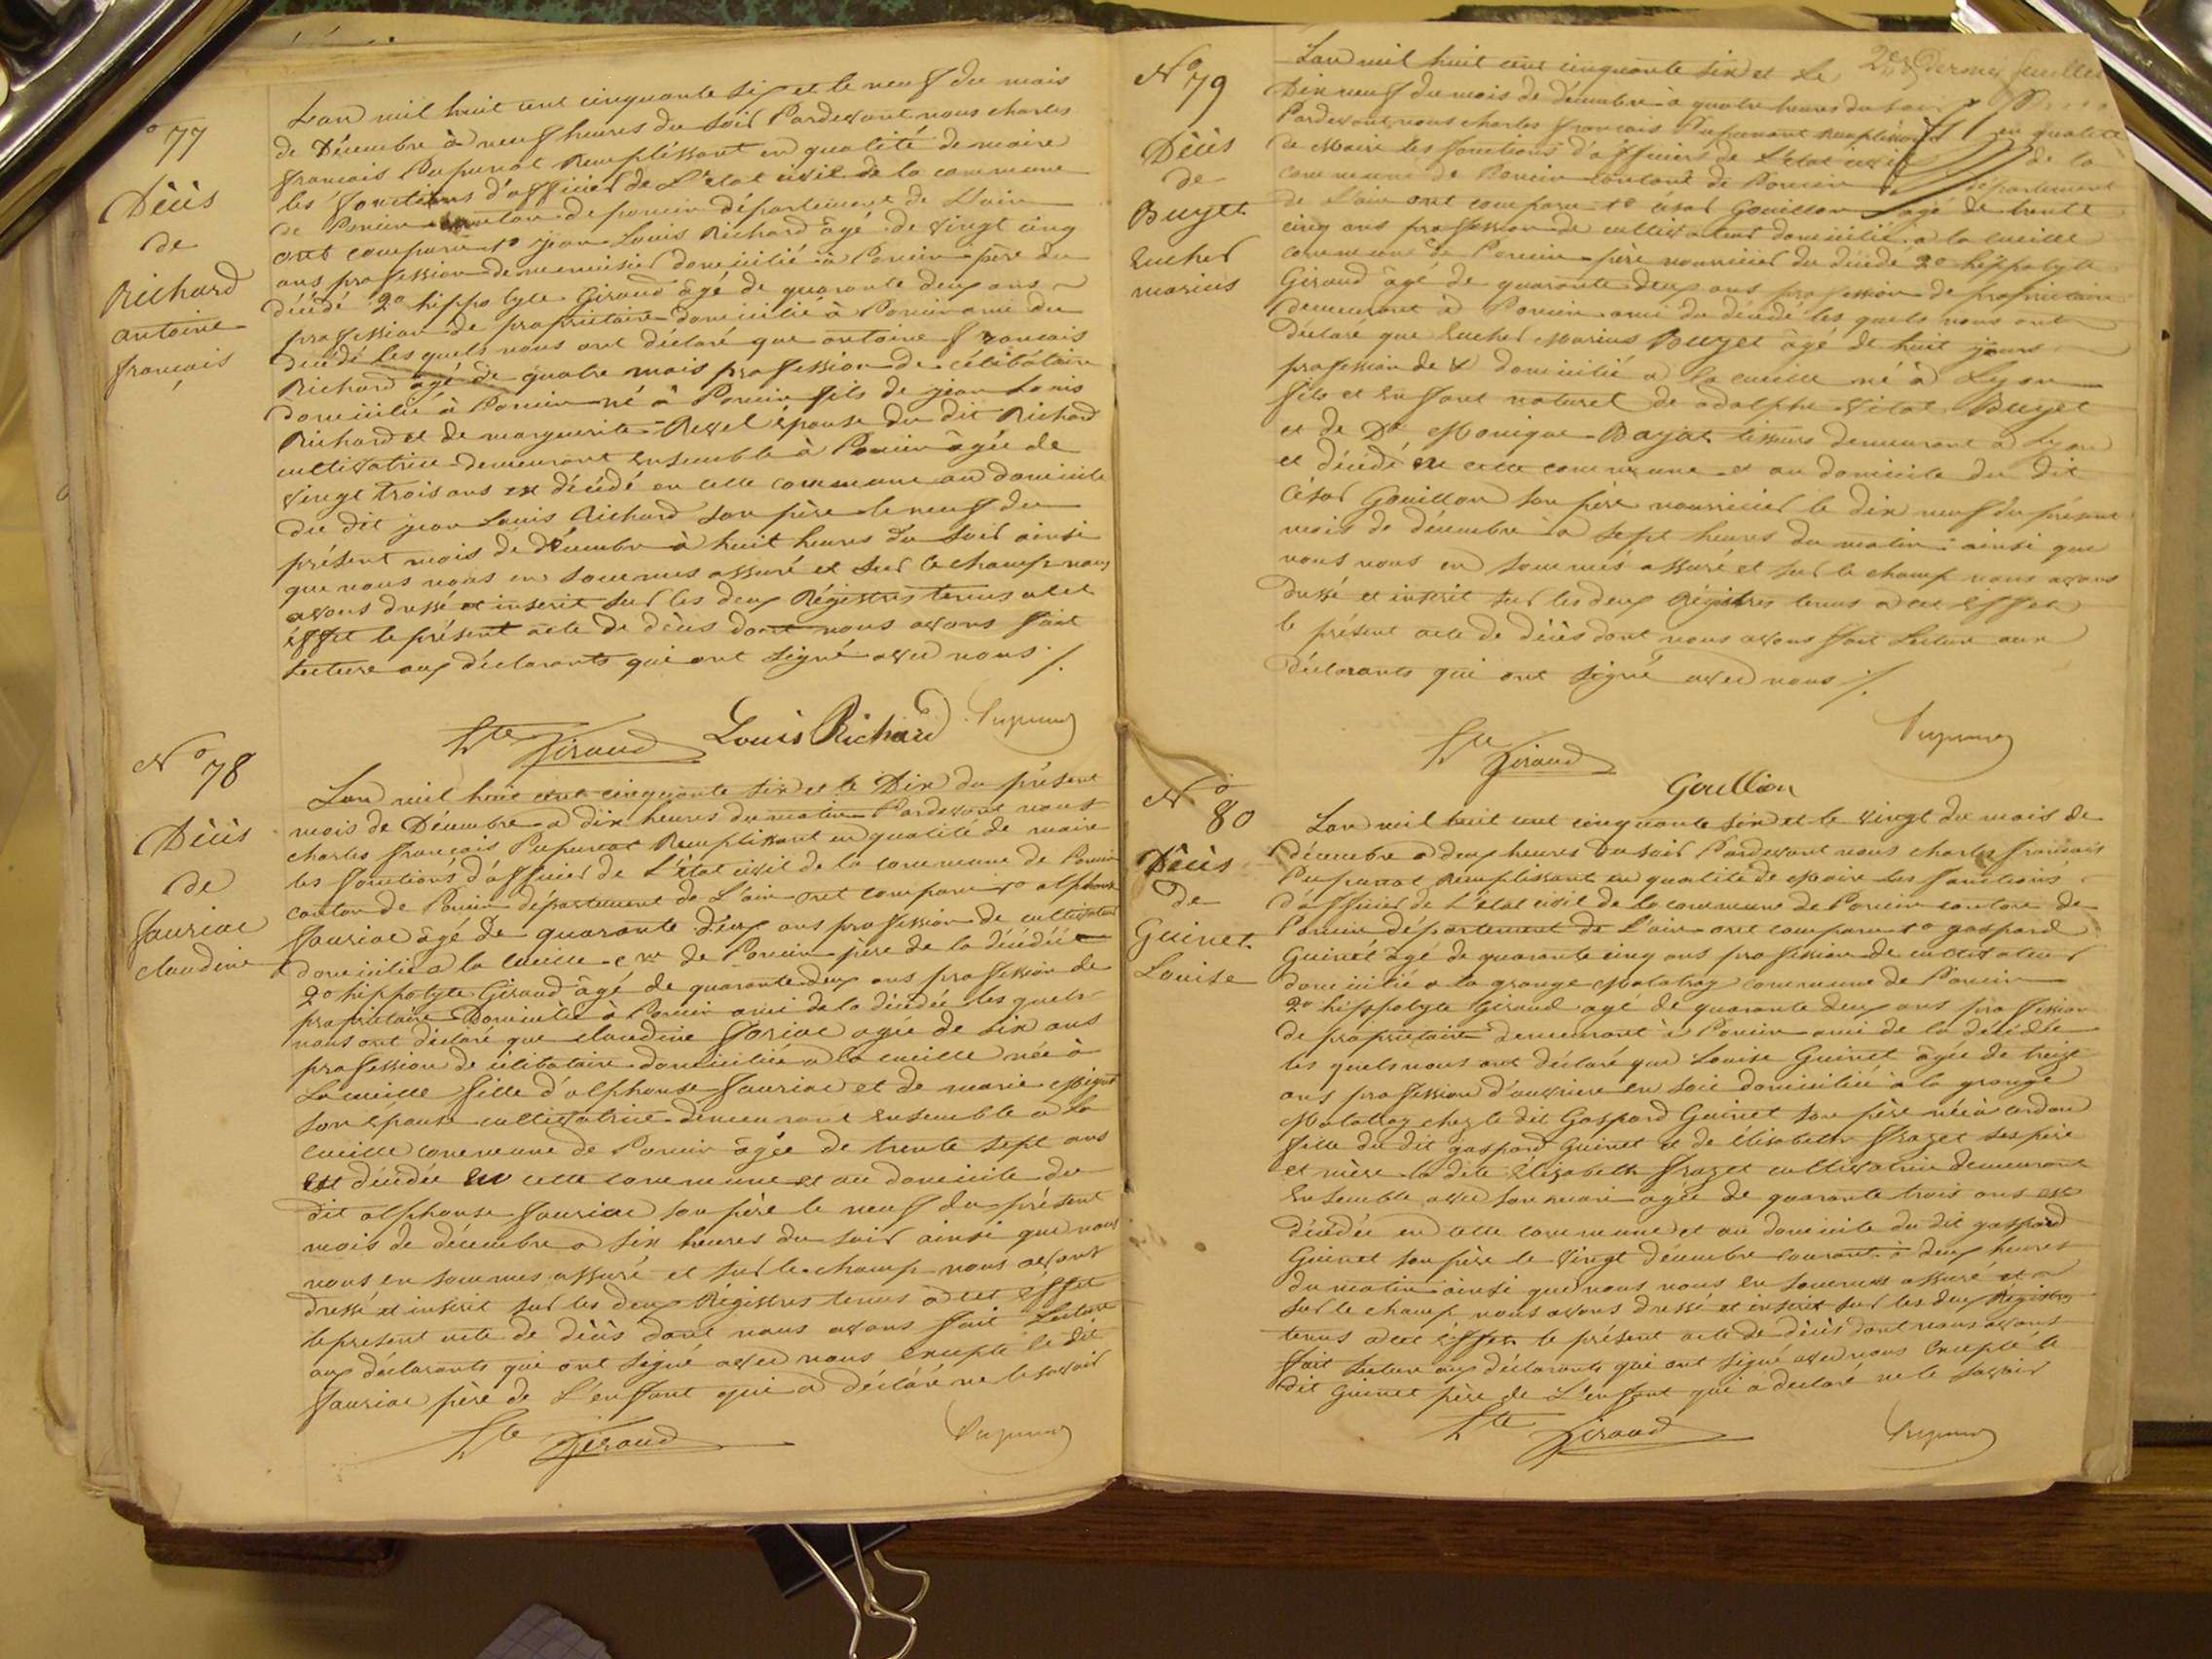 ° 77
Décès
de
Richard
antoine
français
Lan mil huit cent cinquante six et le neuf du mois
de Décembre à neuf heures du soir Pardevant nous charles
français Pupunat Remplissant en qualité de maire
les fonctions d'officier de L'état civil de la commune
de Poncin canton de poncin département de L'ain
ont comparu 1° jean Louis Richard âgé de vingt cinq
ans profession de menuisier domicilié à Poncin père du
décédé 2° hippolyte Giraud âgé de quarante deux ans
profession de propriétaire domicilié à Poncin ami du
décédé Les quels nous ont déclaré que antoine français
Richard âgé de quatre mois profession de célibataire
domicilié à Poncin né à Poncin fils de jean Louis
Richard et de marguerite Revel épouse du dit Richard
cultivatrice demeurant ensemble à Poncin âgée de
vingt trois ans est décédé en cette commune au domicile
du dit jean Louis Richard son père le neuf du
présent mois de décembre à huit heures du soir ainsi
que nous nous en sommes assuré et sur le champ nous
avons dressé et inscrit sur les deux Régistres tenus a cet
éffet le présent acte de décès dont nous avons fait
lecture aux déclarants qui ont signé avec nous /.
Hte Giraud Louis Richard Pupunat
N° 78
Décès
de
fauriac
claudine
Lan mil huit cent cinquante six et le Dix du présent
mois de Décembre a dix heures du matin Pardevant nous
charles français Pupunat Remplissant en qualité de maire
les fonctions d'officier de L'état civil de la commune de Poncin
canton de Poncin département de L'ain ont comparu 1° alphonse
fauriac âgé de quarante deux ans profession de cultivateur
domicilié a la cueille cne de Poncin père de la décédée
2° hippolyte Giraud âgé de quarante deux ans profession de
propriétaire Domicilié à Poncin ami de la décédée les quels
nous ont déclaré que claudine foriac agée de six ans
profession de célibataire domiciliée a la cueille née à
La cueille fille d'alphonse fauriac et de marie
son épouse cultivatrice demeurant ensemble a la
cueille commune de Poncin âgée de trente sept ans
est décédée en cette commune et au domicile du
dit alphonse fauriac son père le neuf du présent
mois de décembre a six heures du soir ainsi que nous
nous en sommes assuré et sur le champ nous avons
dressé et inscrit sur les deux Régistres tenus à cet éffet
le present acte de décès dont nous avons fait Lecture
aux déclarants qui ont signé avec nous excepté le dit
fauriac père de L'enfant qui a déclaré ne le savoir
Hte Giraud Pupunat
N° 79
Décès
de
Buyet
Eucher
marius
2e et dernier feuillet
Lan mil huit cent cinquante six et le
Dix neuf du mois de décembre à quatre heures du soir
Pardevant nous charles francais Pupunat remplissant en qualité
de Maire les fonctions d'officier de L'état civil de la
commune de Poncin canton de Poncin département
de L'ain ont comparu 1° césar Gouillon âgé de trente
cinq ans profession de cultivateur domicilié a la cueille
commune de Poncin père nourricier du décédé 2° hippolyte
Giraud âgé de quarante deux ans profession de propriétaire
demeurant à Poncin ami du décédé les quels nous ont
déclaré que Eucher Marius Buyet âgé de huit jours
profession de x domicilié a la cueille né à Lyon
fils et enfant naturel de adolphe Vital Buyet
et de De Monique Bayat demeurant a Lyon
et décédé en cette commune et au domicile du dit
César Gouillon son père nourricier le dix neuf du présent
mois de décembre à sept heures du matin ainsi que
nous nous en sommes assuré et sur le champ nous avons
dressé et inscrit sur les deux Régistres tenus a cet effet
le présent acte de décès dont nous avons fait Lecture aux
déclarants qui ont signé avec nous /.
Hte Giraud Pupunat
Goullion
N° 80
Décès
de
Guinet
Louise
Lan mil huit cent cinquante six et le vingt du mois de
décembre a deux heures du soir Pardevant nous charles francais
Pupunat remplissant en qualité de Maire les fonctions
d'officier de L'état civil de la commune de Poncin canton de
Poncin département de L'ain ont comparu 1° gaspard
Guinet âgé de quarante cinq ans profession de cultivateur
domicilié a la grange Malatray commune de Poncin
2° hippolyte Giraud agé de quarante deux ans profession
de propriétaire demeurant à Poncin ami de la décédée
les quels nous ont déclaré que Louise Guinet âgée de treize
ans profession d'ouvriere en soie domiciliée a la grange
Malatray chez le dit Gaspard Guinet son père née à cerdon
fille du dit gaspard Guinet et de élisabeth frazet ses père
et mère la dite Elisabeth frazet cultivatrice demeurant
ensemble avec son mari agée de quarante trois ans est
décédée en cette commune et au domicile du dit gaspard
Guinet son père le vingt décembre courant à deux heures
du matin ainsi que nous nous en sommes assuré et
sur le champ nous avons dressé et inscrit sur les deux Régistres
tenus a cet éffet le présent acte de décès dont nous avons
fait lecture aux déclarants qui ont signé avec nous Excepté le
dit Guinet père de L'enfant qui a declaré ne le savoir
Hte Giraud Pupunat